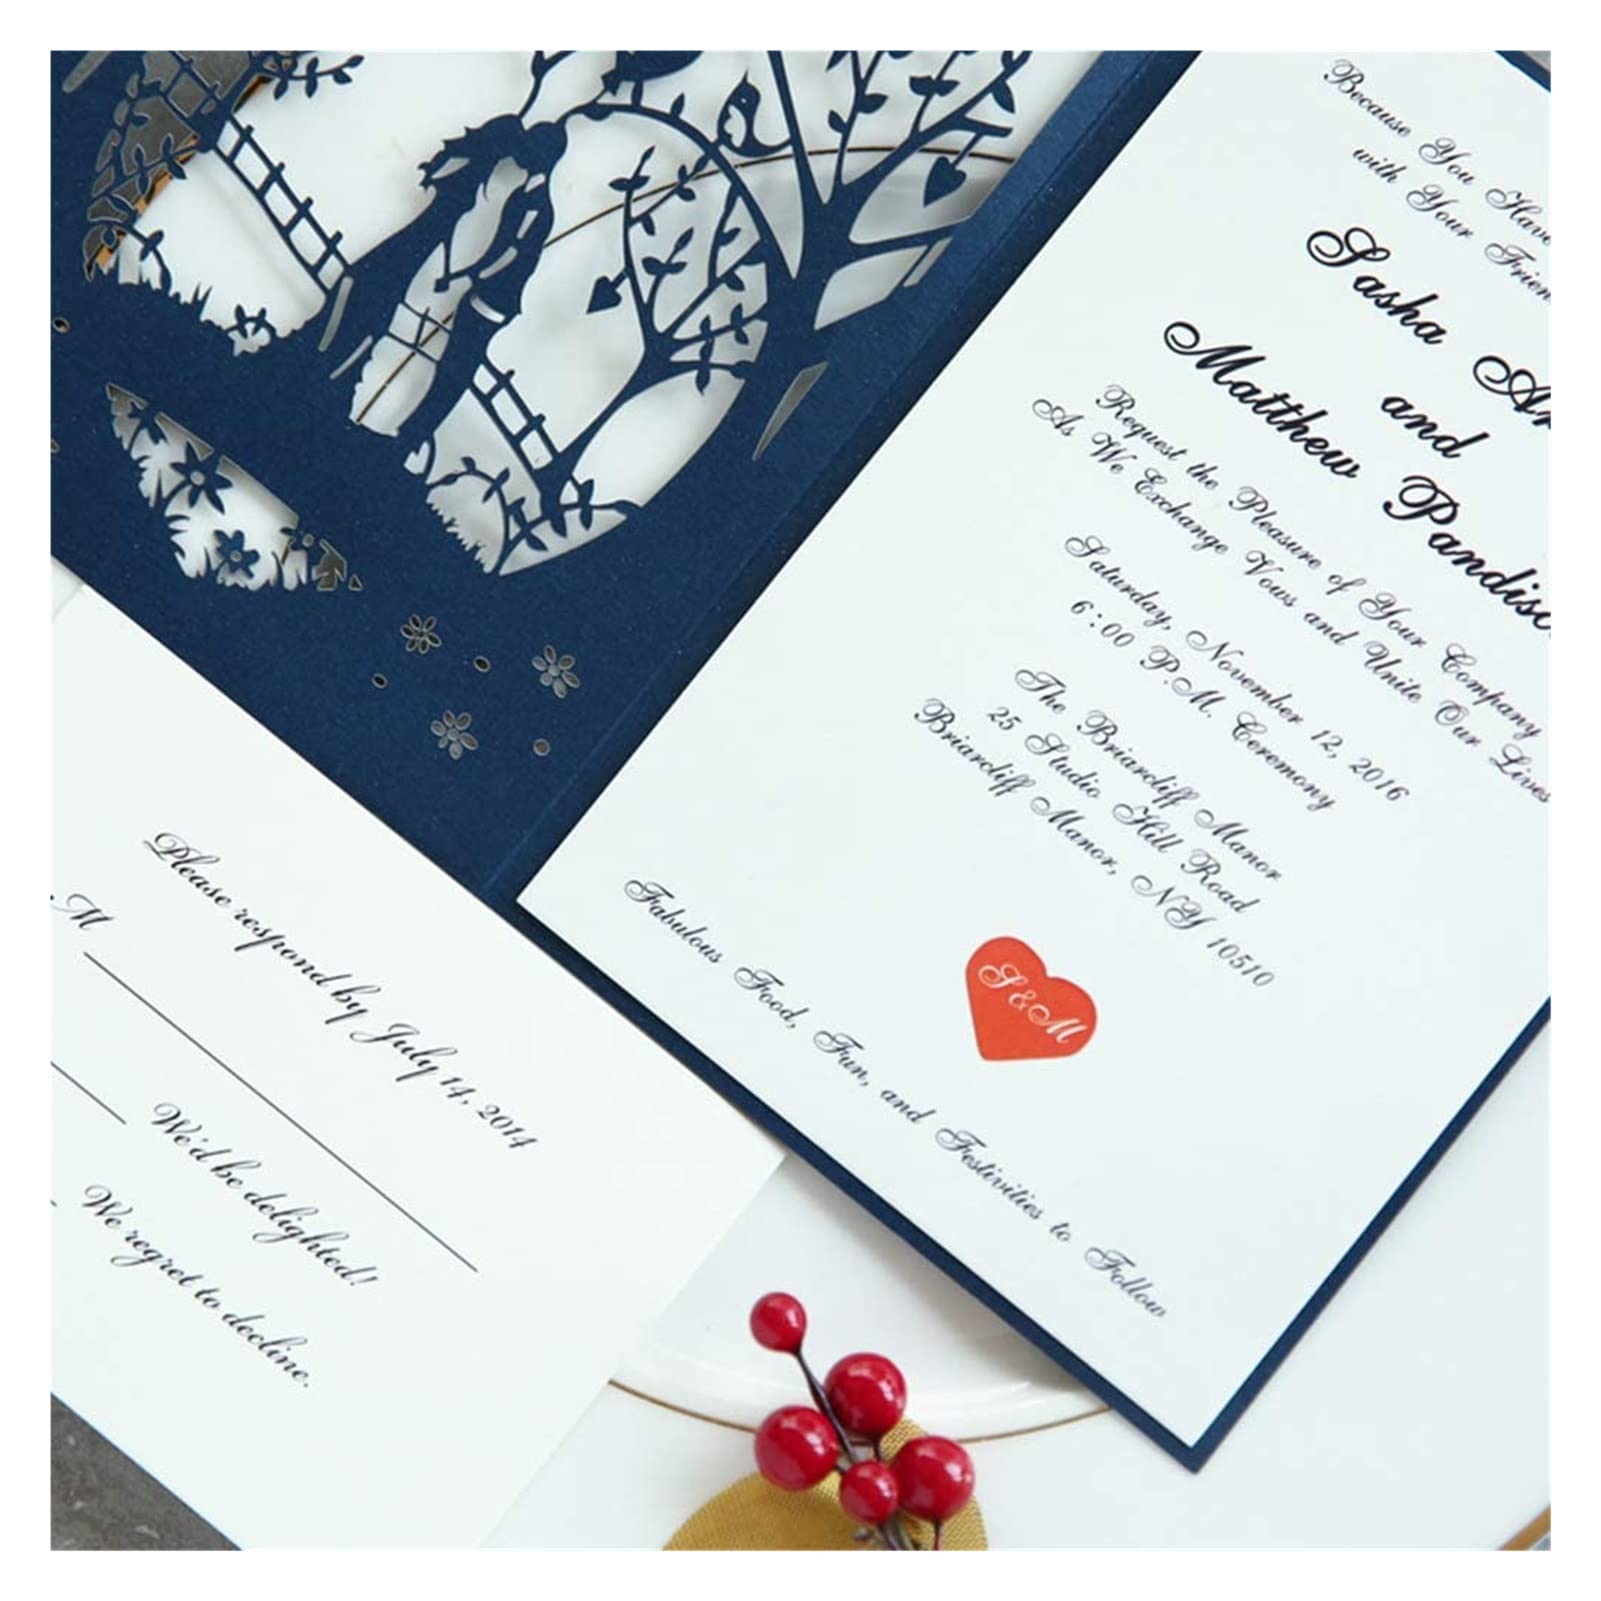 Because You Have
with Your Frien
Sasha
and
Matthew Pandisc
Request the Pleasure of Your Company
As We Exchange Vows and Unite Our Lives
Saturday, November 12, 2016
6:00 P.M. Ceremony
The Briarcliff Manor
25 Studio Hill Road
Briarcliff Manor, NY 10510
S&M
Fabulous Food, Fun, and Festivities to Follow
Please respond by July 14, 2014
M
We'd be delighted!
We regret to decline.